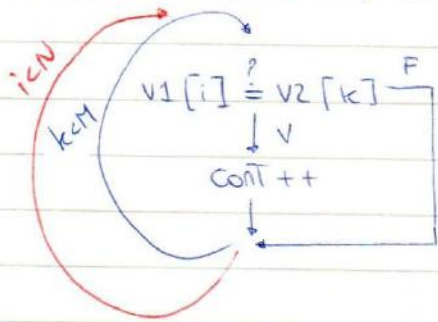 i<N
k<M
V1[i] ≟ V2[k] F
V
CONT ++